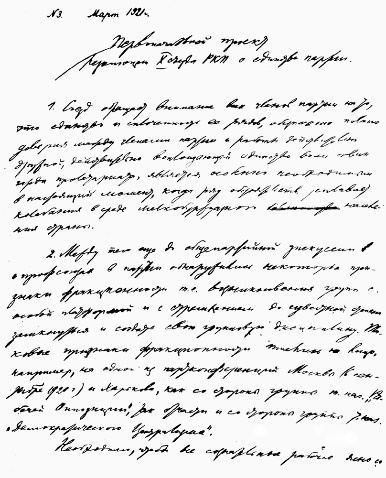 N3. Март 1921 г.
Первоначальный проект
Резолюции X съезда РКП о единстве партии.
1. Съезд обращает внимание всех членов партии на то,
что единство и сплоченность ее рядов, обеспечение полного
доверия между членами партии и работы действительно
дружной, действительно воплощающей единство воли аван-
гарда пролетариата, является особенно необходимым
в настоящий момент, когда ряд обстоятельств усиливает
колебания в среде мелкобуржуазного населе-
ния страны.
2. Между тем еще до общепартийной дискуссии
о профсоюзах в партии обнаружились некоторые при-
знаки фракционности т.е. возникновения групп с
особой платформой и с стремлением до известной степени
замкнуться и создать свою групповую дисциплину. Та-
ковые признаки фракционности
например, на одной из партконференций Москвы в ноя-
бре 1920 г.) и Харькова, как со стороны группы т. наз. "Ра-
бочей Оппозиции", так отчасти и со стороны группы т. наз.
"демократического Централизма".
Необходимо, чтобы все сознательные рабочие ясно